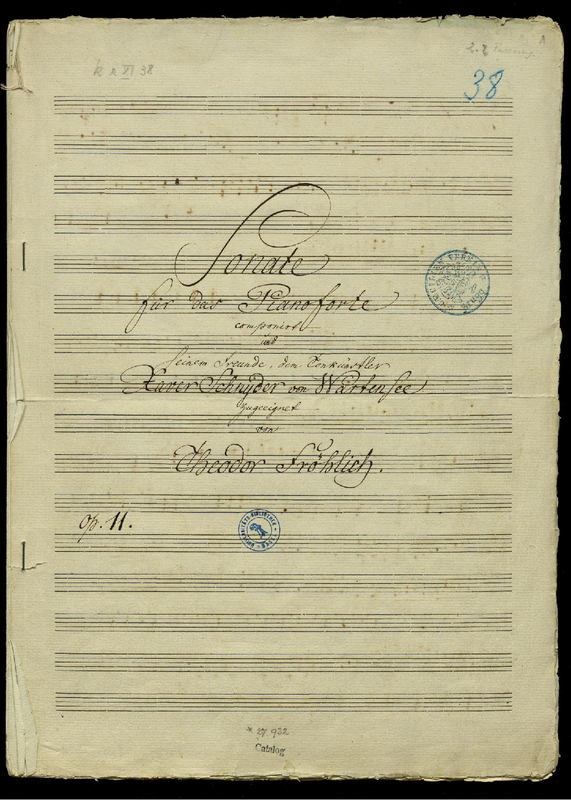 k r VI 38
38
Sonate
für das Pianoforte
componirt
und
seinem Freunde, dem Tonkünstler
Xaver Schnyder von Wartensee
zugeeignet
von
Theodor Fröhlich.
Op. 11.
* 27. 932
Catalog